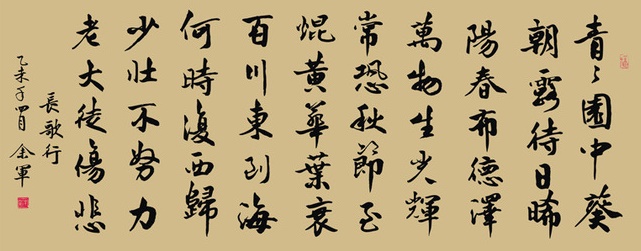 青々園中葵
朝露待日晞
陽春布德澤
萬物生光輝
常恐秋節至
焜黃華葉衰
百川東到海
何時復西歸
少壯不努力
老大徒傷悲
長歌行
乙未年四月 余軍